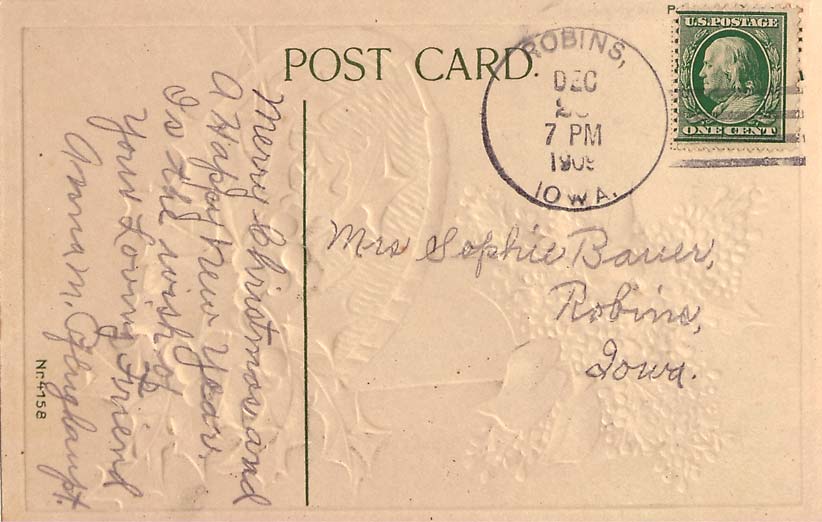 POST CARD.
ROBINS,
DEC
7 PM
IOWA.
U.S. POSTAGE
ONE CENT
Merry Christmas and
A Happy New Year,
Is the wish of
Your Loving Friend
Anna M.
Mrs Sophie Bauer,
Robins,
Iowa.
Nr. 4158